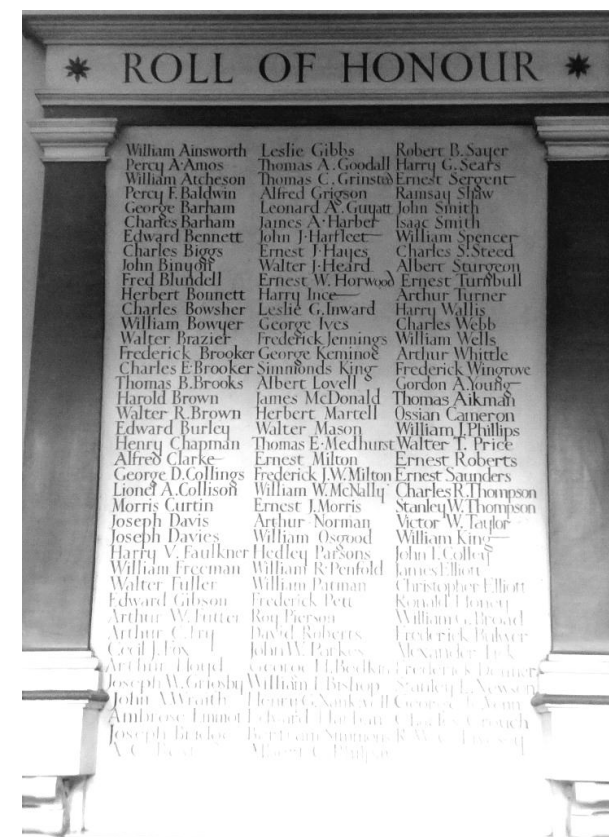 ROLL OF HONOUR
William Ainsworth
Percy A. Amos
William Atcheson
Percy F. Baldwin
George Barham
Charles Barham
Edward Bennett
Charles Biggs
John Binyon
Fred Blundell
Herbert Bonnett
Charles Bowsher
William Bowyer
Walter Brazier
Frederick Brooker
Charles E. Brooker
Thomas B. Brooks
Harold Brown
Walter R. Brown
Edward Burley
Henry Chapman
Alfred Clarke
George D. Collings
Lionel A. Collison
Morris Curtin
Joseph Davis
Joseph Davies
Harry V. Faulkner
William Freeman
Walter Fuller
Edward Gibson
Arthur W. Futter
Arthur C. Fry
Cecil J. Fox
Arthur
Joseph W. Grigsby
John A. Wraith
Ambrose Emmot
Joseph
Leslie Gibbs
Thomas A. Goodall
Thomas C. Grinsted
Alfred Grigson
Leonard A. Guyatt
James A. Harber
John J. Harfleet
Ernest J. Hayes
Walter J. Heard
Ernest W. Horwood
Harry Ince
Leslie G. Inward
George Ives
Frederick Jennings
George Keminoe
Simmonds King
Albert Lovell
James McDonald
Herbert Martell
Walter Mason
Thomas E. Medhurst
Ernest Milton
Frederick J. W. Milton
William W. McNally
Ernest J. Morris
Arthur Norman
William Osgood
Hedley Parsons
William R. Penfold
William Patman
Frederick Pett
Roy Pierson
David Roberts
John W. Parkes
George H.
William J. Bishop
Henry G.
Edward
Bertram Simmons
Robert B. Sayer
Harry G. Sears
Ernest Sergent
Ramsay Shaw
John Smith
Isaac Smith
William Spencer
Charles S. Steed
Albert Sturgeon
Ernest Turnbull
Arthur Turner
Harry Wallis
Charles Webb
William Wells
Arthur Whittle
Frederick Wingrove
Gordon A. Young
Thomas Aikman
Ossian Cameron
William J. Phillips
Walter T. Price
Ernest Roberts
Ernest Saunders
Charles R. Thompson
Stanley W. Thompson
Victor W. Taylor
William King
John I. Colley
James Elliott
Christopher Elliott
Ronald Honey
William G. Broad
Frederick
Alexander
Frederick
Stanley L. Newson
George
Charles Crouch